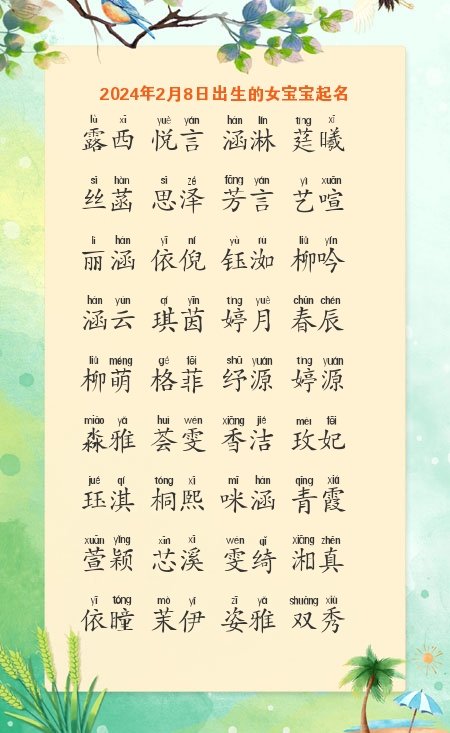 2024年2月8日出生的女宝宝起名
lù xī yuè yán hàn lín tíng xī
露西 悦言 涵淋 莛曦
sī hàn sī zé fāng yán yì xuān
丝菡 思泽 芳言 艺喧
lì hán yī ní yù rù liǔ yín
丽涵 依倪 钰洳 柳吟
hán yún qí yīn tíng yuè chūn chén
涵云 琪茵 婷月 春辰
liǔ méng gé fēi shū yuán tíng yuán
柳萌 格菲 纾源 婷源
miǎo yǎ huì wén xiāng jié méi fēi
淼雅 荟雯 香洁 玫妃
jué qí tóng xī mī hán qīng xiá
珏淇 桐熙 咪涵 青霞
xuān yǐng xīn xī wén qǐ xiāng zhēn
萱颖 芯溪 雯绮 湘真
yī tóng mò yī zī yǎ shuāng xiù
依瞳 茉伊 姿雅 双秀